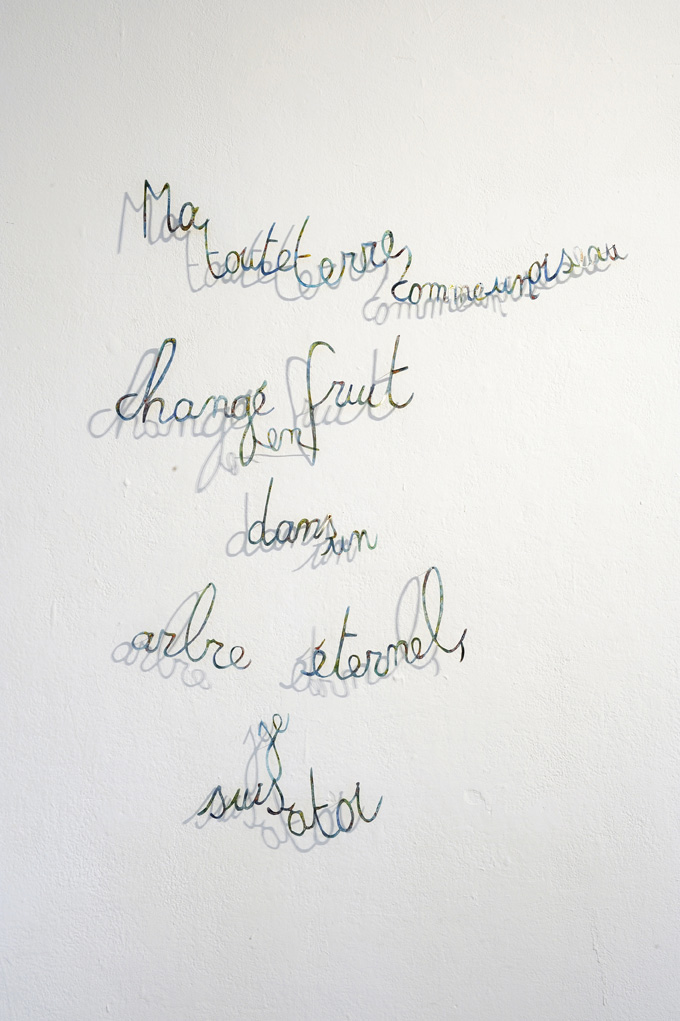 Ma touteterre, commeunoiseau
changé en fruit
dans un
arbre éternel,
je
suis atoi